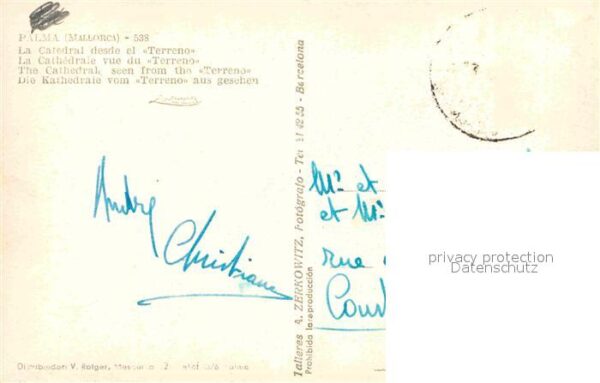 PALMA (MALLORCA) - 538
La Catedral desde el «Terreno»
La Cathédrale vue du «Terreno»
The Cathedral, seen from the «Terreno»
Die Kathedrale vom «Terreno» aus gesehen
André
Christiane
Talleres A. ZERKOWITZ, Fotógrafo - Barcelona
Prohibida la reproducción
Mr et
et Mr
rue
privacy protection
Datenschutz
V. Rotger,